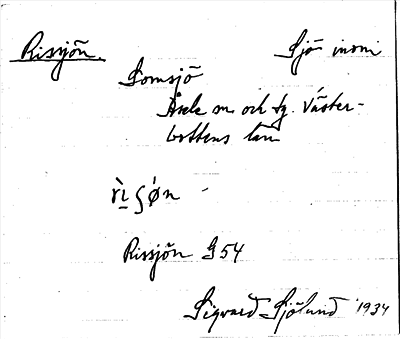 Rissjön. Sjö inom
Lomsjö
Åsele sn. och tg. Väster-
bottens län
Rissjön G54
Sigvard Sjölund 1934